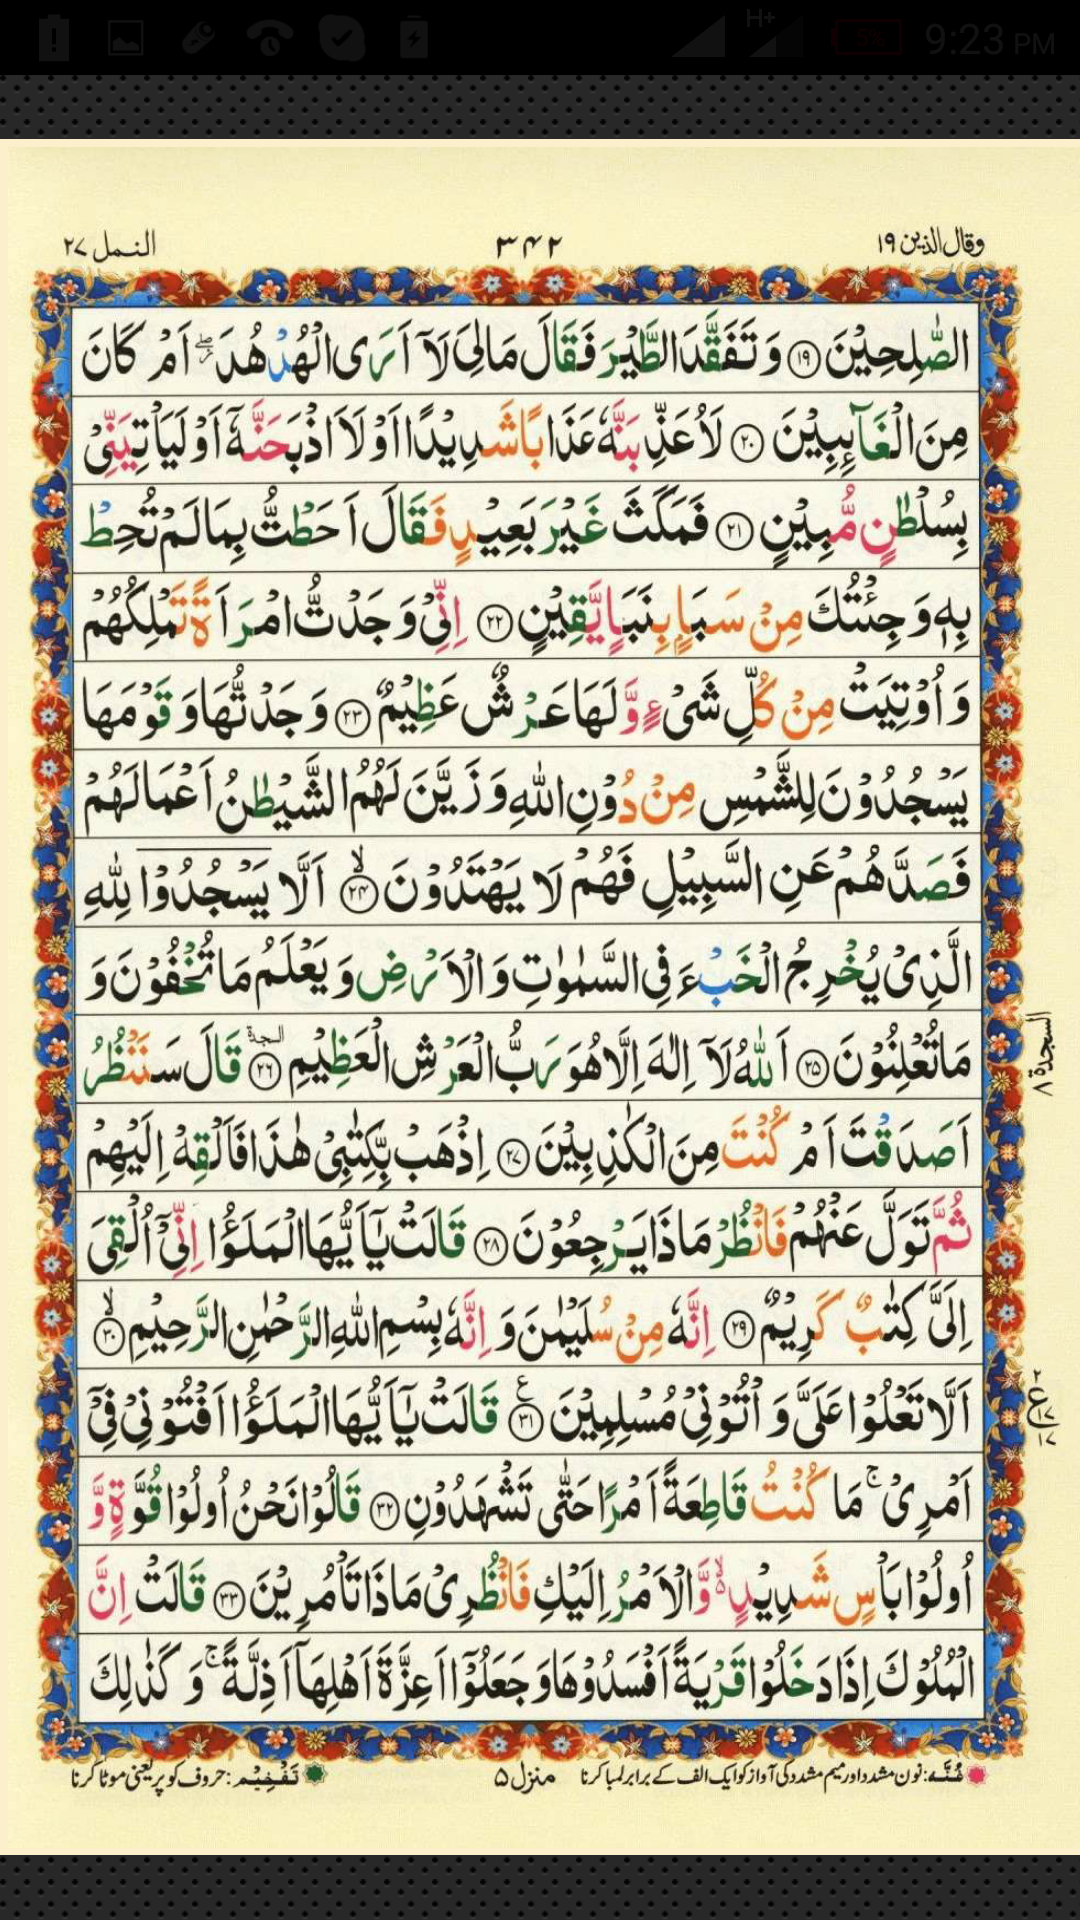 H+
5%
9:23 PM
وقال الذین ۱۹
۳۴۲
النمل ۲۷
الصّٰلِحِیْنَ ﴿۱۹﴾ وَ تَفَقَّدَ الطَّیْرَ فَقَالَ مَا لِیَ لَاۤ اَرَی الْهُدْهُدَ ۖؗ اَمْ كَانَ
مِنَ الْغَآىِٕبِیْنَ ﴿۲۰﴾ لَاُعَذِّبَنَّهٗ عَذَابًا شَدِیْدًا اَوْ لَاۡاَذْبَحَنَّهٗۤ اَوْ لَیَاْتِیَنِّیْ
بِسُلْطٰنٍ مُّبِیْنٍ ﴿۲۱﴾ فَمَكَثَ غَیْرَ بَعِیْدٍ فَقَالَ اَحَطْتُّ بِمَا لَمْ تُحِطْ
بِهٖ وَ جِئْتُكَ مِنْ سَبَاٍۭ بِنَبَاٍ یَّقِیْنٍ ﴿۲۲﴾ اِنِّیْ وَجَدْتُّ امْرَاَةً تَمْلِكُهُمْ
وَ اُوْتِیَتْ مِنْ كُلِّ شَیْءٍ وَّ لَهَا عَرْشٌ عَظِیْمٌ ﴿۲۳﴾ وَجَدْتُّهَا وَ قَوْمَهَا
یَسْجُدُوْنَ لِلشَّمْسِ مِنْ دُوْنِ اللهِ وَ زَیَّنَ لَهُمُ الشَّیْطٰنُ اَعْمَالَهُمْ
فَصَدَّهُمْ عَنِ السَّبِیْلِ فَهُمْ لَا یَهْتَدُوْنَ ﴿۲۴﴾ۙ اَلَّا یَسْجُدُوْا لِلّٰهِ
الَّذِیْ یُخْرِجُ الْخَبْءَ فِی السَّمٰوٰتِ وَ الْاَرْضِ وَ یَعْلَمُ مَا تُخْفُوْنَ وَ
مَا تُعْلِنُوْنَ ﴿۲۵﴾ اَللّٰهُ لَاۤ اِلٰهَ اِلَّا هُوَ رَبُّ الْعَرْشِ الْعَظِیْمِ ﴿۲۶﴾ السجدة قَالَ سَنَنْظُرُ
السجدة ۸
اَصَدَقْتَ اَمْ كُنْتَ مِنَ الْكٰذِبِیْنَ ﴿۲۷﴾ اِذْهَبْ بِّكِتٰبِیْ هٰذَا فَاَلْقِهْ اِلَیْهِمْ
ثُمَّ تَوَلَّ عَنْهُمْ فَانْظُرْ مَا ذَا یَرْجِعُوْنَ ﴿۲۸﴾ قَالَتْ یٰۤاَیُّهَا الْمَلَؤُا اِنِّیْۤ اُلْقِیَ
اِلَیَّ كِتٰبٌ كَرِیْمٌ ﴿۲۹﴾ اِنَّهٗ مِنْ سُلَیْمٰنَ وَ اِنَّهٗ بِسْمِ اللهِ الرَّحْمٰنِ الرَّحِیْمِ ﴿۳۰﴾ۙ
اَلَّا تَعْلُوْا عَلَیَّ وَ اْتُوْنِیْ مُسْلِمِیْنَ ﴿۳۱﴾ ع قَالَتْ یٰۤاَیُّهَا الْمَلَؤُا اَفْتُوْنِیْ فِیْۤ
۲ ع ۱۷ ۱۷
اَمْرِیْ ۚ مَا كُنْتُ قَاطِعَةً اَمْرًا حَتّٰی تَشْهَدُوْنِ ﴿۳۲﴾ قَالُوْا نَحْنُ اُولُوْا قُوَّةٍ وَّ
اُولُوْا بَاْسٍ شَدِیْدٍ ۙ۬ وَّ الْاَمْرُ اِلَیْكِ فَانْظُرِیْ مَا ذَا تَاْمُرِیْنَ ﴿۳۳﴾ قَالَتْ اِنَّ
الْمُلُوْكَ اِذَا دَخَلُوْا قَرْیَةً اَفْسَدُوْهَا وَ جَعَلُوْۤا اَعِزَّةَ اَهْلِهَاۤ اَذِلَّةً ۚ وَ كَذٰلِكَ
غُنَّه: نون مشدد اور میم مشدد کی آواز کو ایک الف کے برابر لمبا کرنا
منزل ۵
تَفْخِیْم: حروف کو پر یعنی موٹا کرنا